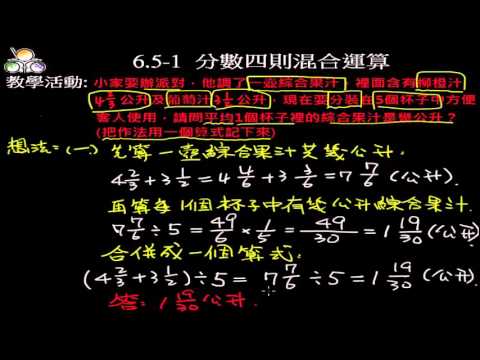 6.5-1 分數四則混合運算
教學活動: 小家要辦派對，他調了一壺綜合果汁，裡面含有柳橙汁
4 2/3 公升及葡萄汁3 1/2 公升，現在要分裝在5個杯子中方便
客人使用，請問平均1個杯子裡的綜合果汁是幾公升？
(把作法用一個算式記下來)
想法:(一) 先算一壺綜合果汁共幾公升.
4 2/3 + 3 1/2 = 4 4/6 + 3 3/6 = 7 7/6 (公升).
再算每1個杯子中有幾公升綜合果汁.
7 7/6 ÷ 5 = 49/6 × 1/5 = 49/30 = 1 19/30 (公升)
合併成一個算式:
(4 2/3 + 3 1/2) ÷ 5 = 7 7/6 ÷ 5 = 1 19/30 (公升).
答: 1 19/30 公升.